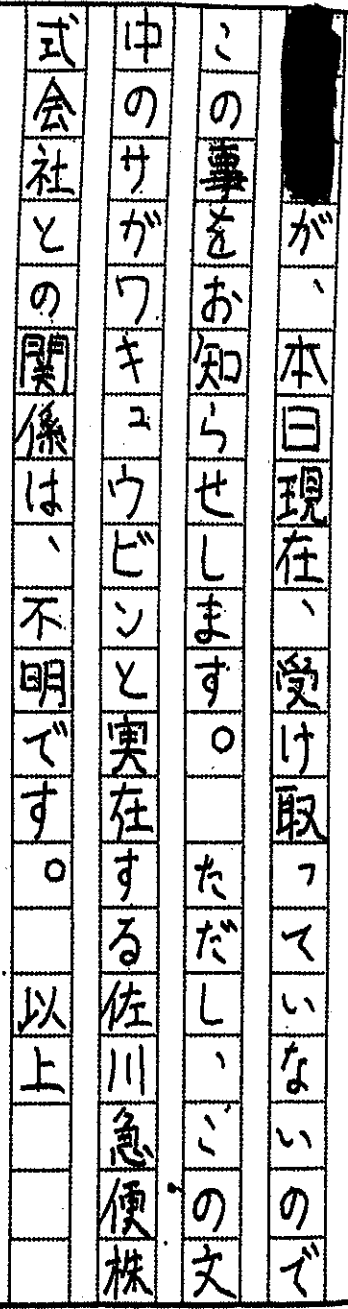 が、本日現在、受け取っていないので
この事をお知らせします。　ただし、この文
中のサガワキュウビンと実在する佐川急便株
式会社との関係は、不明です。　以上